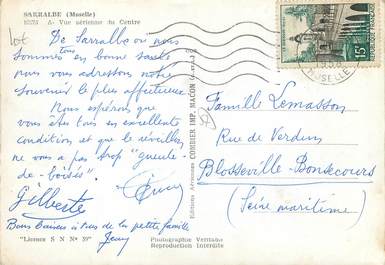 SARRALBE (Moselle)
A- Vue aérienne du Centre
De Sarralbe où nous
sommes tous en bonne santé
nous vous adressons notre
souvenir le plus affectueux.
Nous espérons que
vous êtes tous en excellente
condition et que le réveillon
ne vous a pas trop "gueule
de-boisés".
Gilberte
Bons baisers à tous de la petite famille
"Licence S N N° 39"
Photographie Véritable
Reproduction Interdite
Editions Aériennes COMBIER IMP. MACON
15F
MOSELLE
Famille Lemasson
Rue de Verdun
Blosseville-Bonsecours
(Seine maritime)